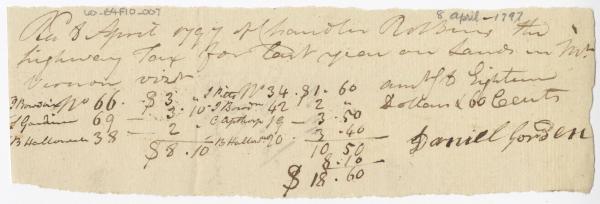 LO-E4F10-007
8 april - 1797
Rec'd 8 April 1797 of Chandler Robbins the
highway Tax for last year on Lands in Mt
Vernon vizt
J Bowdoin No 66 . $ 3 " J Pitts No 34 . $1 . 60
S Gardiner 69 — 3 . 10 J Bowdoin 42 2 "
B Hallowell 38 — 2 " C Apthorp 19 — 3 . 50
$ 8 . 10 B Hallowell 3 . 40
10 50
8 . 10
$ 18 . 60
amt to Eighteen
Dollars & 60 Cents
Daniel Gorden